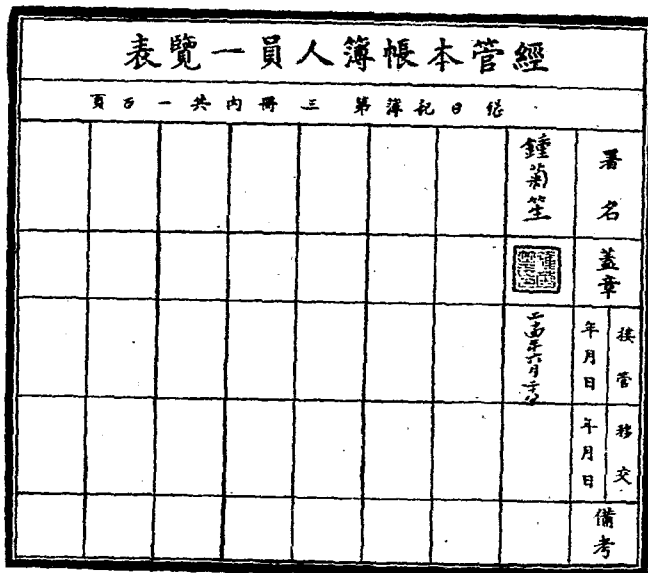 經管本帳簿人員一覽表
日記簿第三冊內共一百頁
署名
鍾菊笙
蓋章
接管
年月日
年六月
移交
年月日
備考